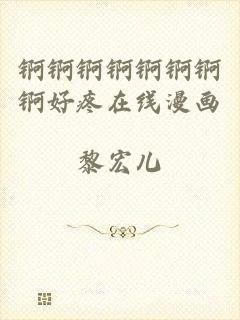 锕锕锕锕锕锕锕
锕好疼在线漫画
黎宏儿